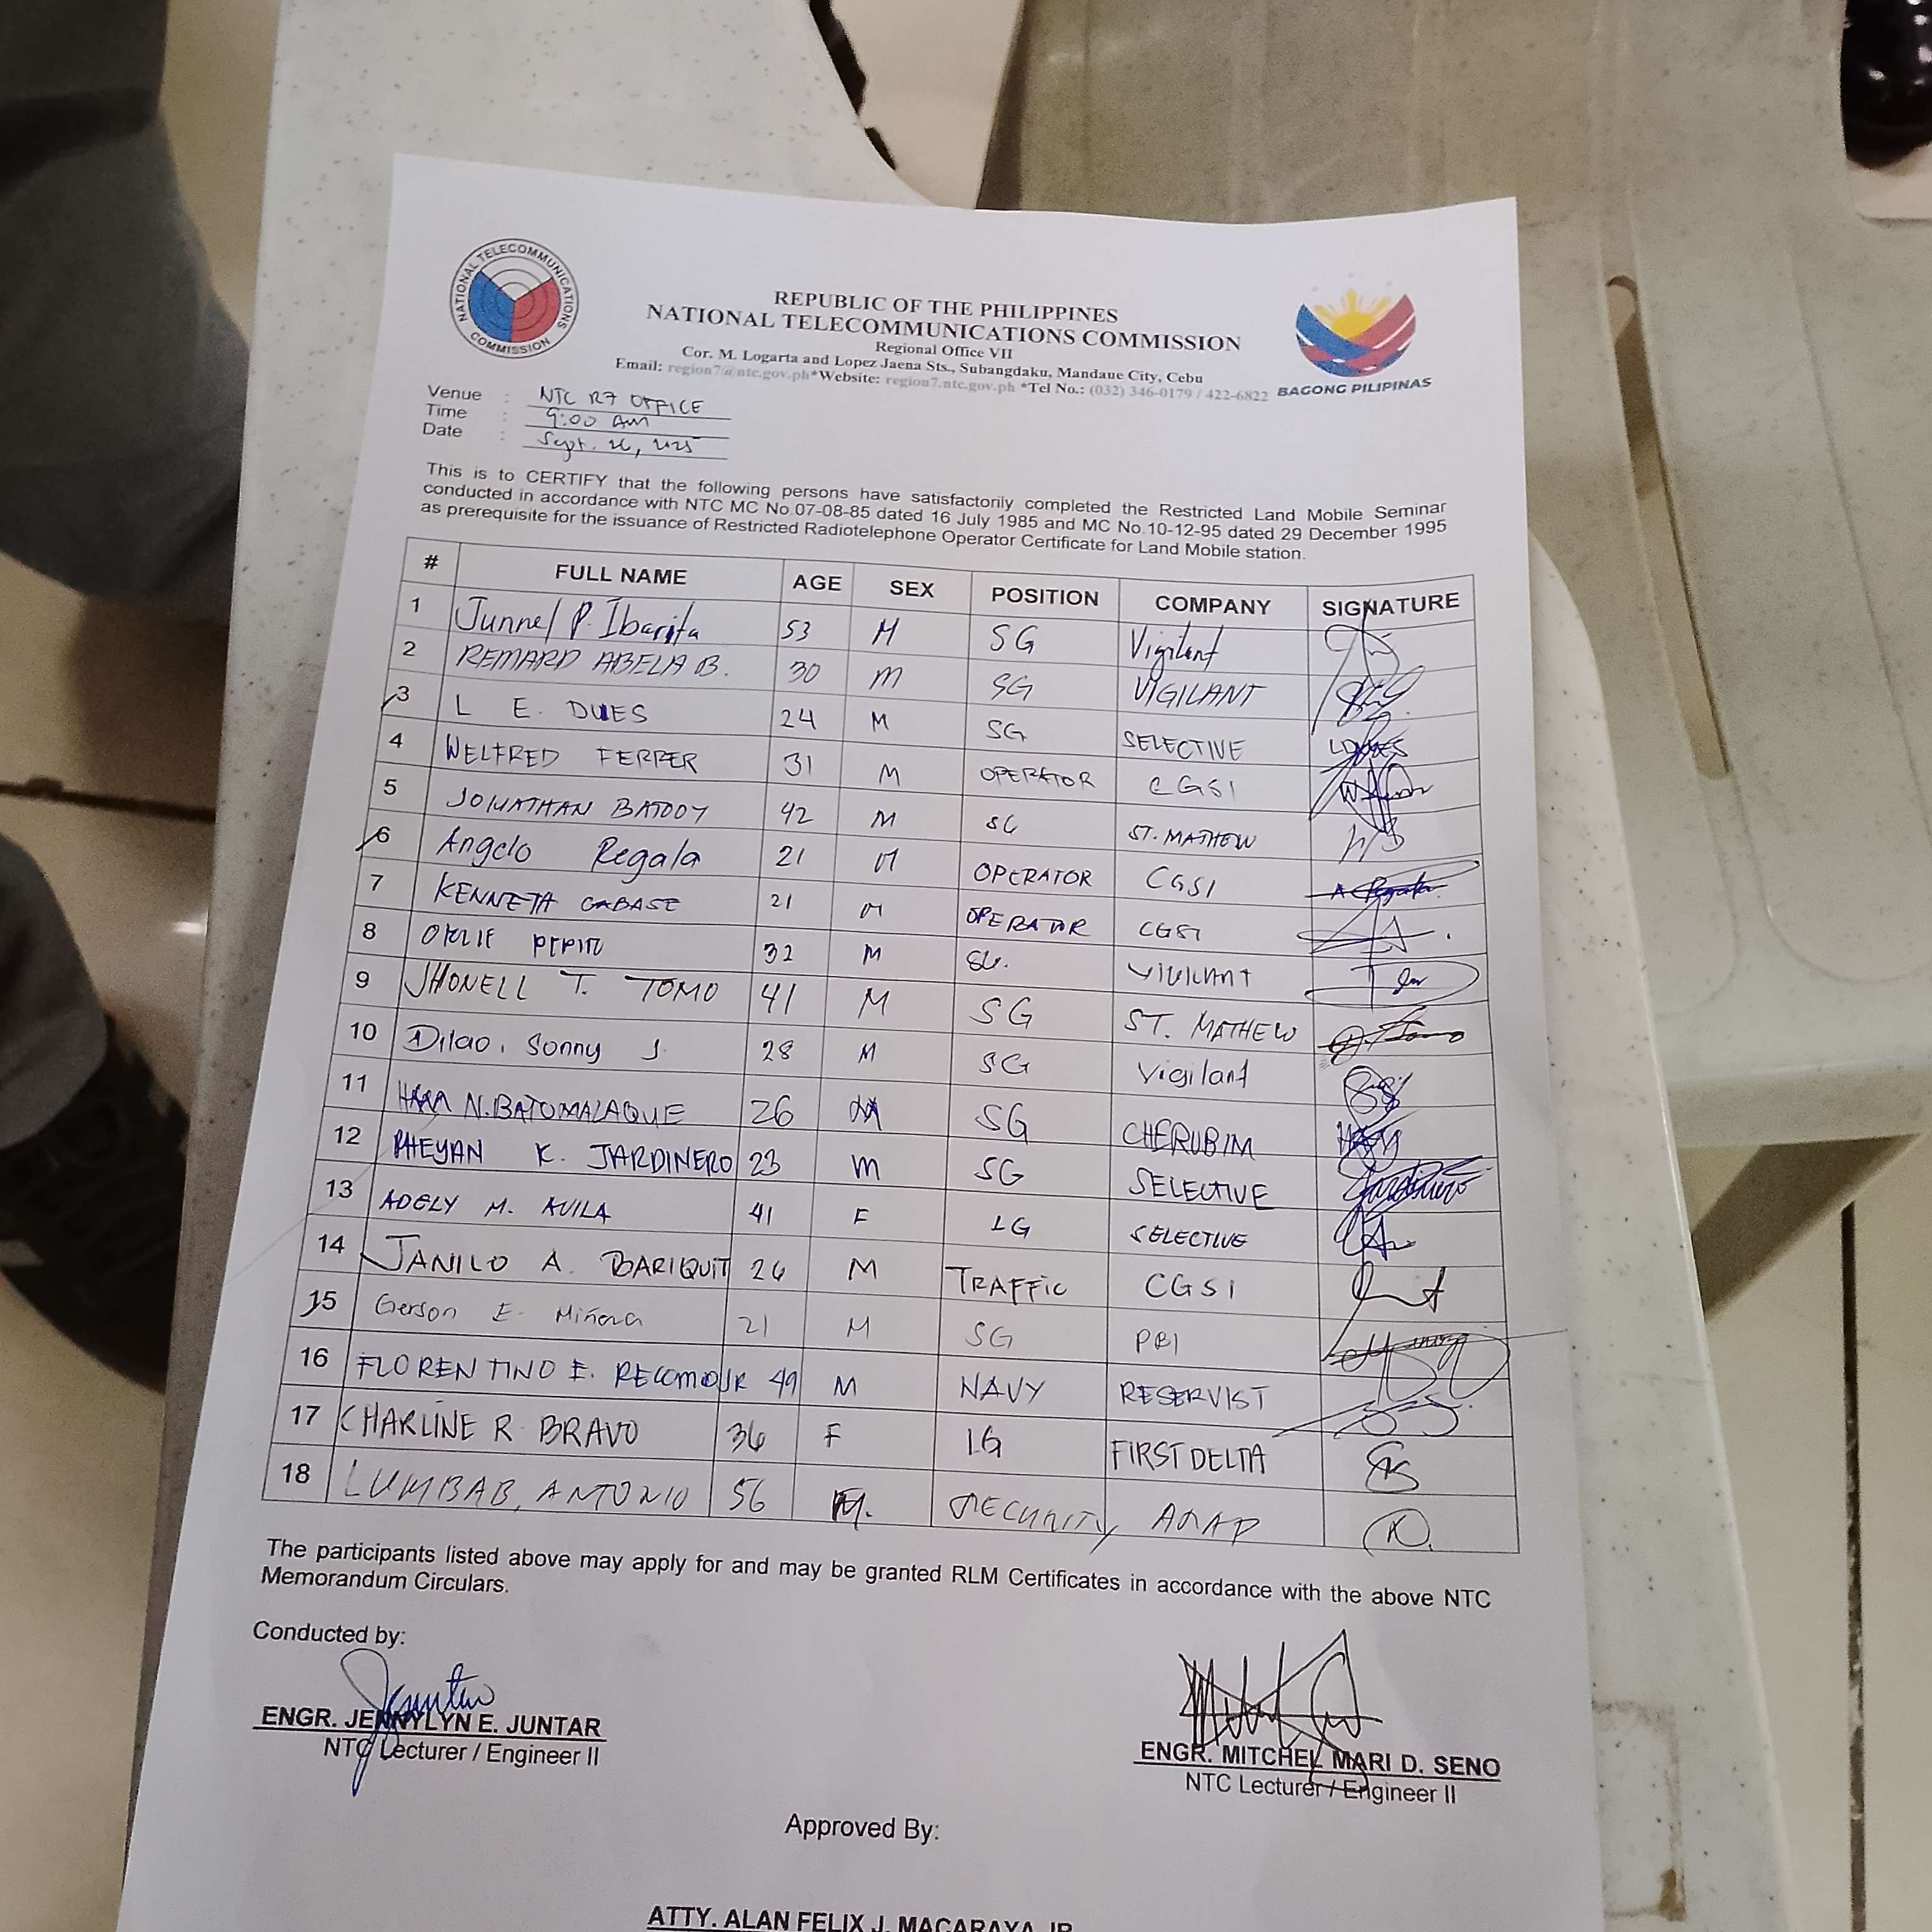 NATIONAL TELECOMMUNICATIONS COMMISSION
REPUBLIC OF THE PHILIPPINES
NATIONAL TELECOMMUNICATIONS COMMISSION
Regional Office VII
Cor. M. Logarta and Lopez Jaena Sts., Subangdaku, Mandaue City, Cebu
Email: region7@ntc.gov.ph*Website: region7.ntc.gov.ph *Tel No.: (032) 346-0179 / 422-6822
BAGONG PILIPINAS
Venue : NTC R7 OFFICE
Time : 9:00 AM
Date : Sept. 26, 2025
This is to CERTIFY that the following persons have satisfactorily completed the Restricted Land Mobile Seminar
conducted in accordance with NTC MC No.07-08-85 dated 16 July 1985 and MC No.10-12-95 dated 29 December 1995
as prerequisite for the issuance of Restricted Radiotelephone Operator Certificate for Land Mobile station.
# FULL NAME AGE SEX POSITION COMPANY SIGNATURE
1 Junnel P. Ibarita 53 M SG Vigilant
2 REMARD ABELA B. 30 M SG VIGILANT
3 L E. DUES 24 M SG SELECTIVE LDUES
4 WELFRED FERRER 31 M OPERATOR CGSI
5 JONATHAN BATOOY 42 M SG ST. MATHEW
6 Angelo Regala 21 M OPERATOR CGSI A Regala
7 KENNETH GABASE 21 M OPERATOR CGSI
8 PEPITO 32 M SG. VIGILANT
9 JHONELL T. TOMO 41 M SG ST. MATHEW
10 Dilao, Sonny J. 28 M SG Vigilant
11 N. BATOMALAQUE 26 M SG CHERUBIM
12 RHEYAN K. JARDINERO 23 M SG SELECTIVE
13 ADELY M. AVILA 41 F LG SELECTIVE
14 JANILO A. BARIQUIT 26 M TRAFFIC CGSI
15 Gerson E. Miñoza 21 M SG PBI
16 FLORENTINO E. RECOMO JR 49 M NAVY RESERVIST
17 CHARLINE R. BRAVO 36 F LG FIRST DELTA
18 LUMBAB, ANTONIO 56 M. SECURITY
The participants listed above may apply for and may be granted RLM Certificates in accordance with the above NTC
Memorandum Circulars.
Conducted by:
ENGR. JENNYLYN E. JUNTAR
NTC Lecturer / Engineer II
ENGR. MITCHEL MARI D. SENO
NTC Lecturer / Engineer II
Approved By:
ATTY. ALAN FELIX J. MACARAYA JR